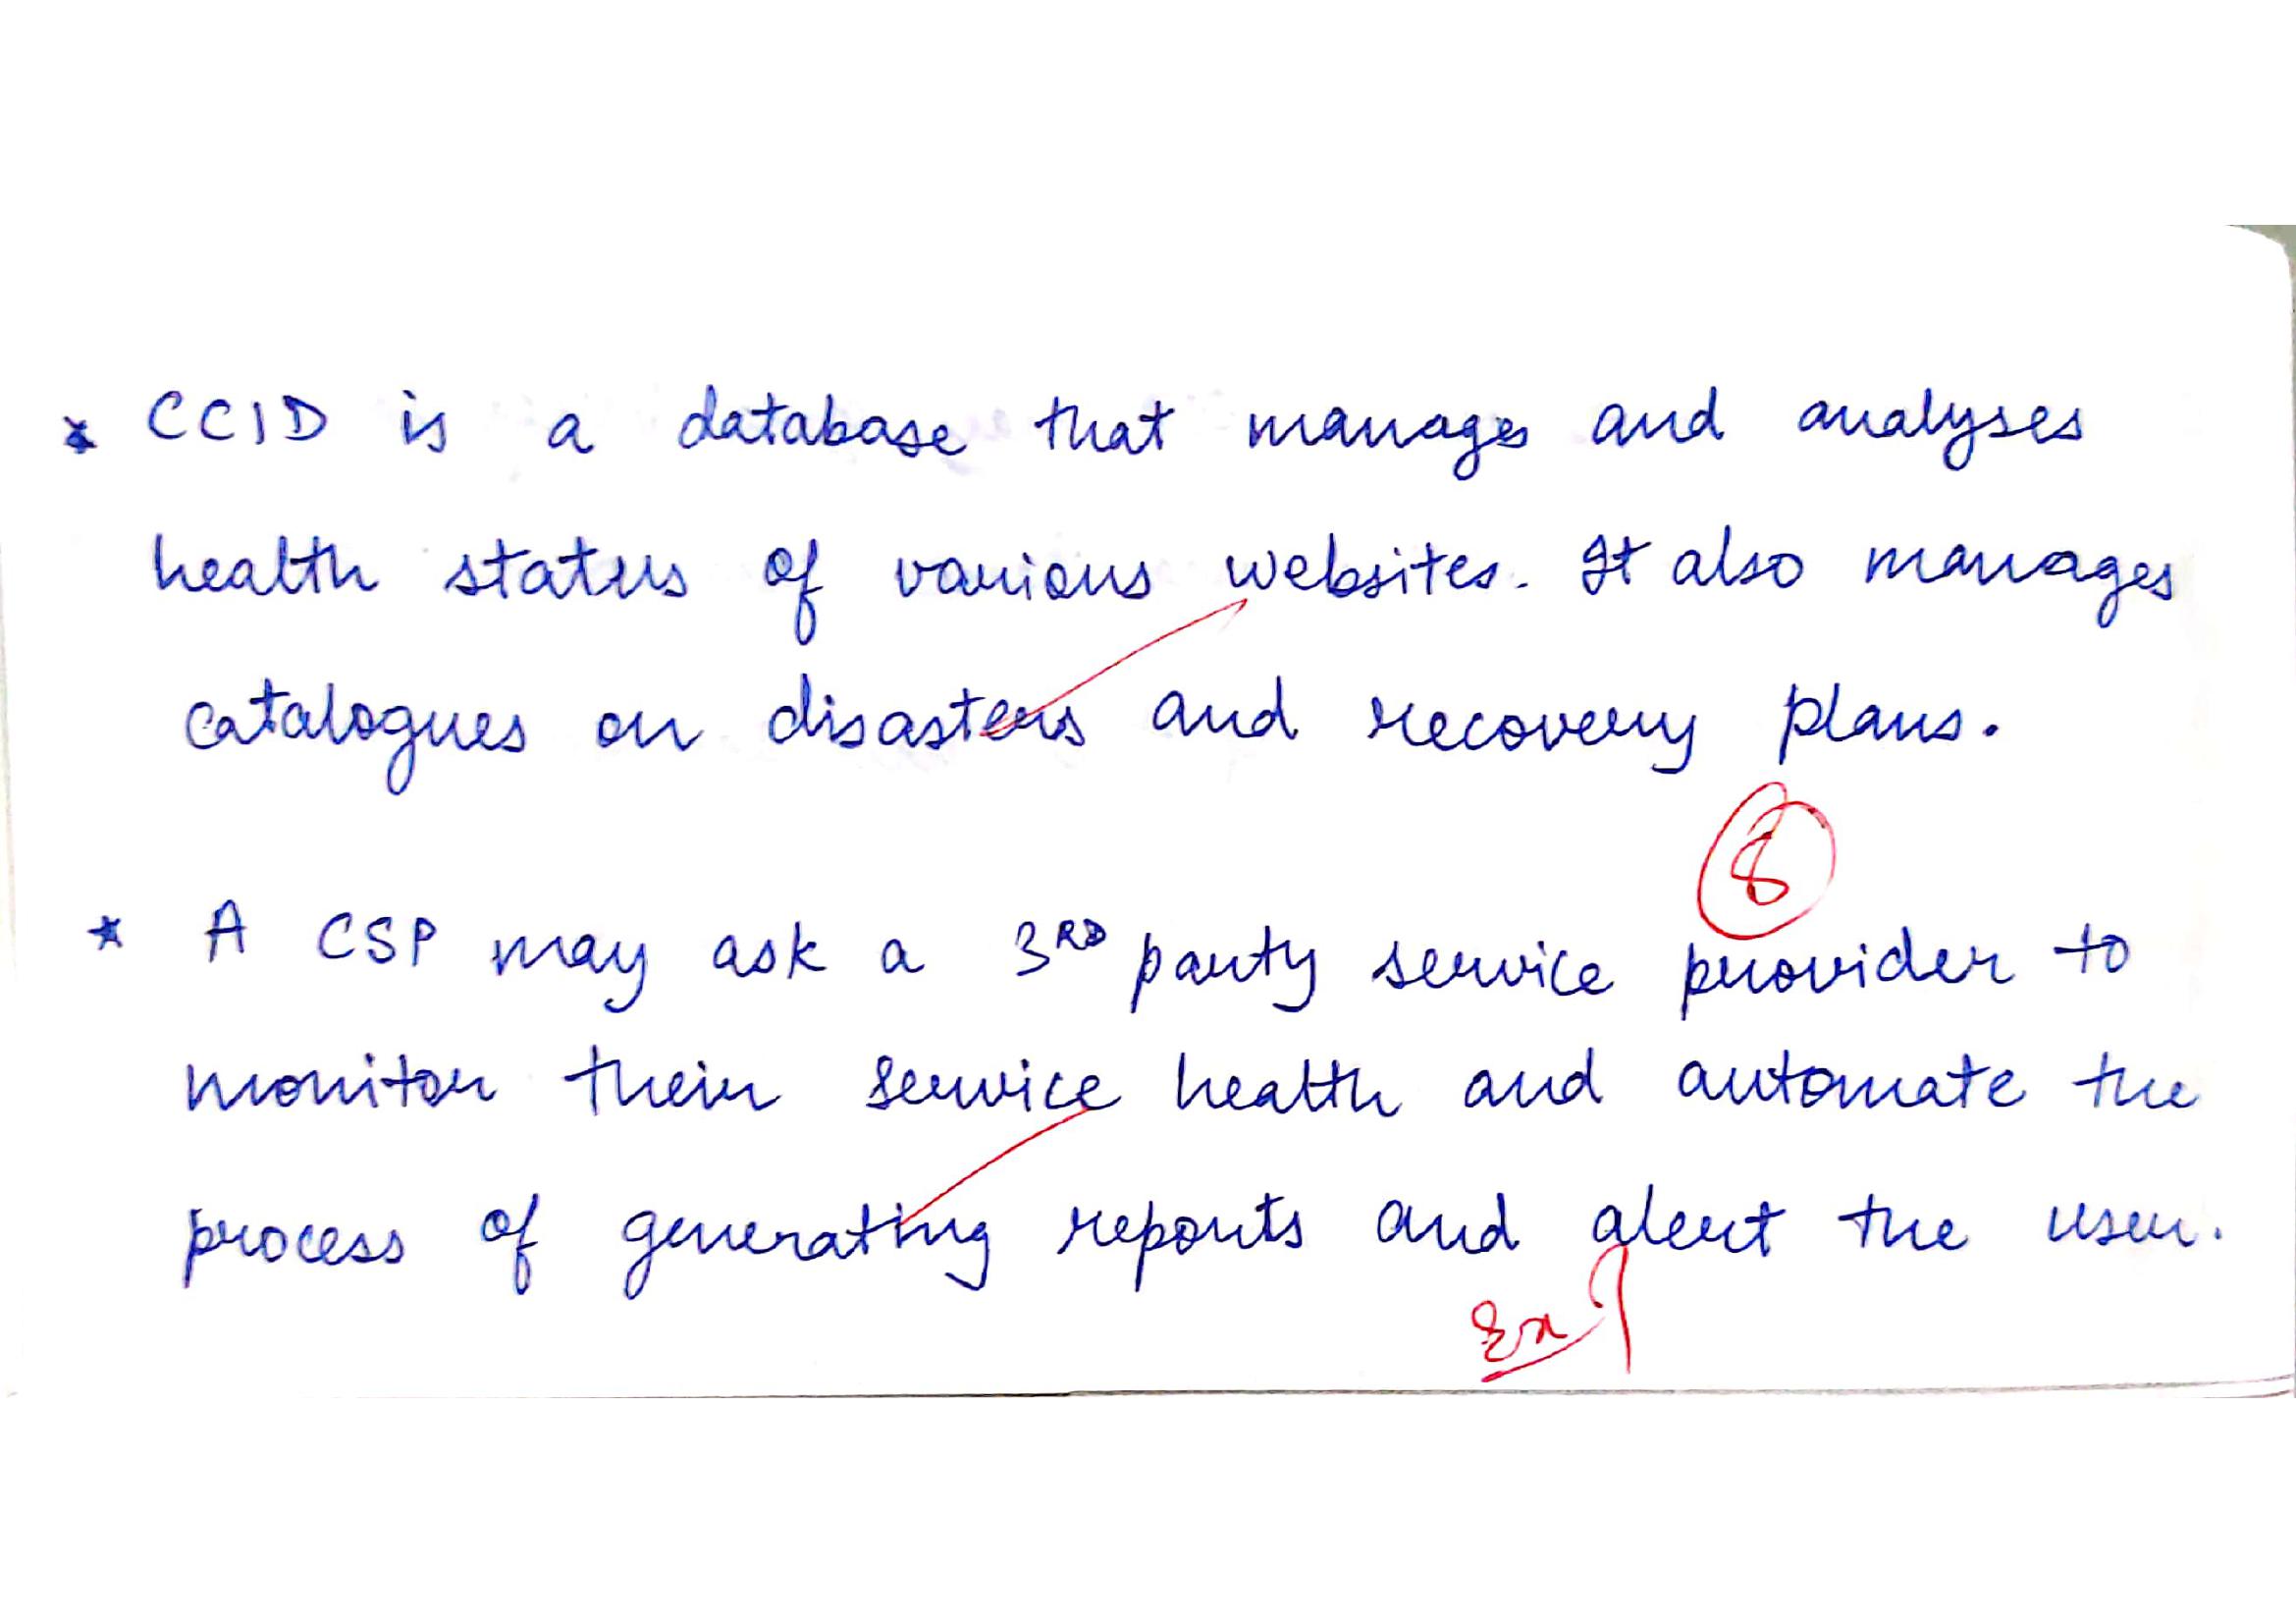 * CCID is a database that manages and analyses
health status of various websites. It also manages
catalogues on disasters and recovery plans.
8
* A CSP may ask a 3RD party service provider to
monitor their service health and automate the
process of generating reports and alert the user.
Ex ?